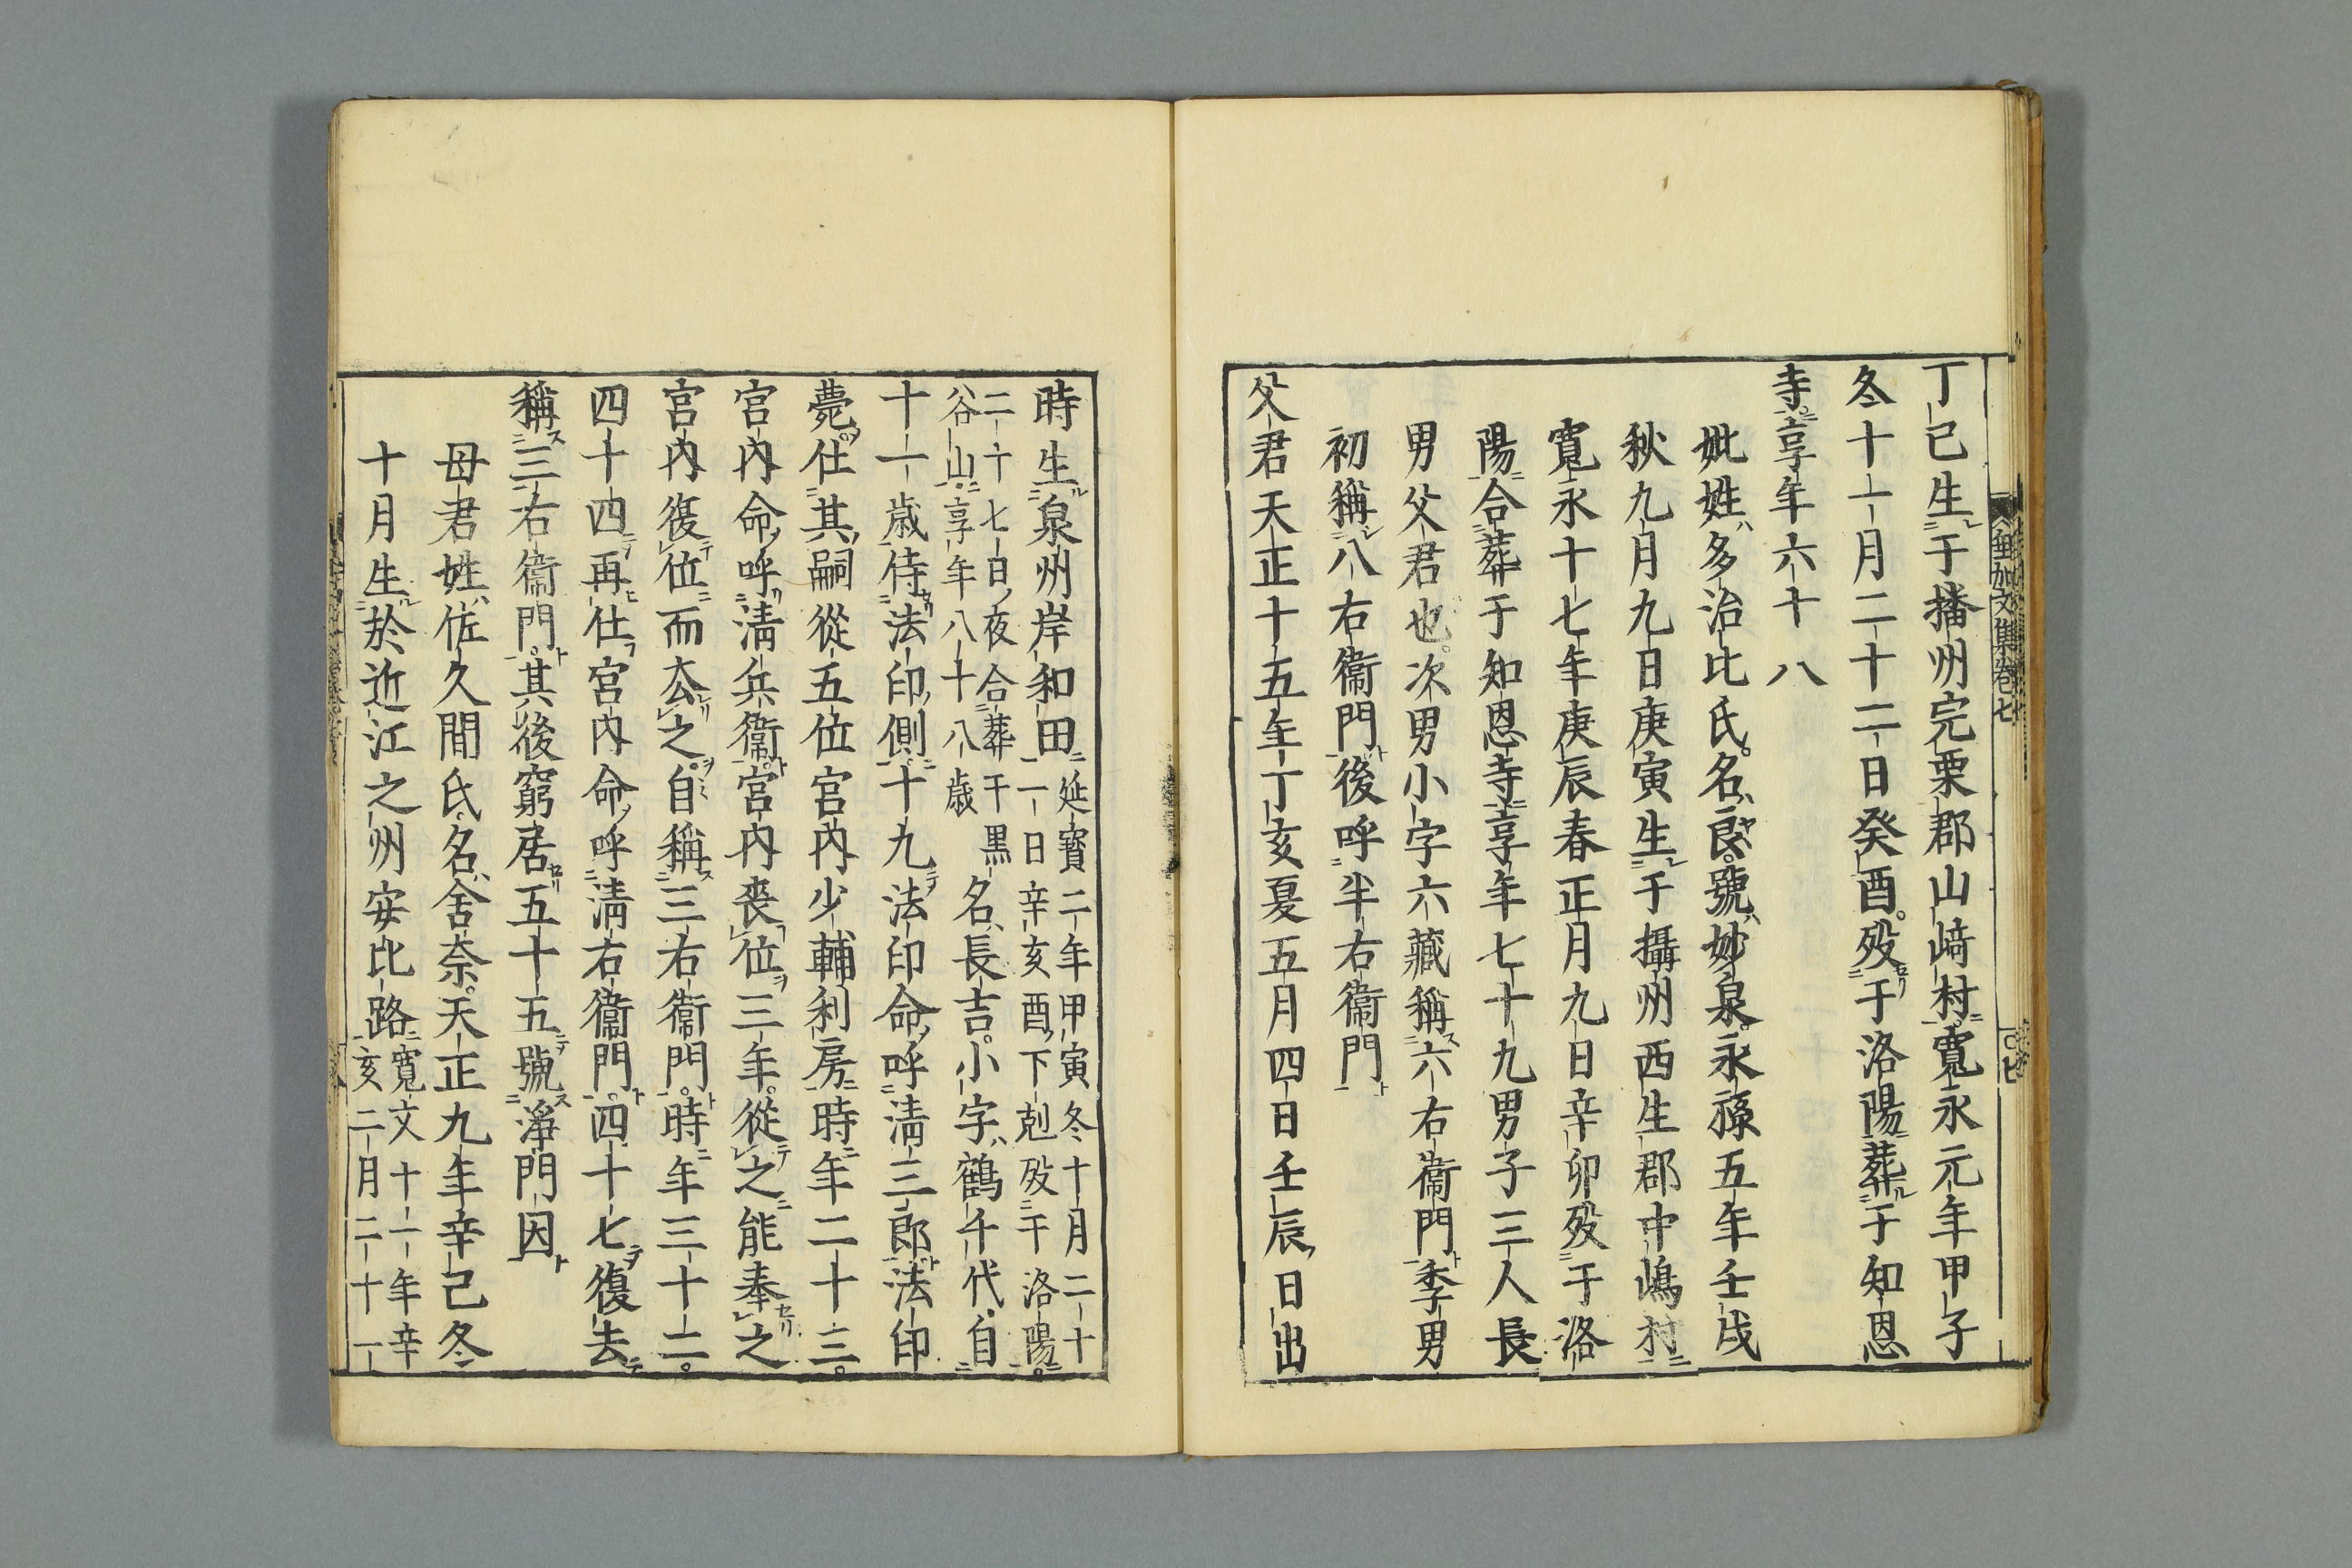 丁巳生于播州完栗郡山﨑村寛永元年甲子
冬十一月二十二日癸酉歿于洛陽葬于知恩
寺享年六十八
妣姓多治比氏名良號妙泉永祿五年壬戌
秋九月九日庚寅生于攝州西生郡中嶋村
寛永十七年庚辰春正月九日辛卯歿于洛
陽合葬于知恩寺享年七十九男子三人長
男父君也次男小字六藏稱六右衞門季男
初稱八右衞門後呼半右衞門
父君天正十五年丁亥夏五月四日壬辰日出
時生泉州岸和田
延寶二年甲寅冬十月二十
一日辛亥酉下剋歿于洛陽
二十七日夜合葬于黒
谷山享年八十八歳
名長吉小字鶴千代自
十一歳侍法印側十九法印命呼淸三郎法印
薨仕其嗣從五位宮內少輔利房時年二十三
宮內命呼淸兵衞宮內喪位三年從之能奉之
宮內復位而厺之自稱三右衞門時年三十二
四十四再仕宮內命呼淸右衞門四十七復去
稱三右衞門其後窮居五十五號淨門因
母君姓佐久間氏名舍奈天正九年辛巳冬
十月生於近江之州安比路
寛文十一年辛
亥二月二十一